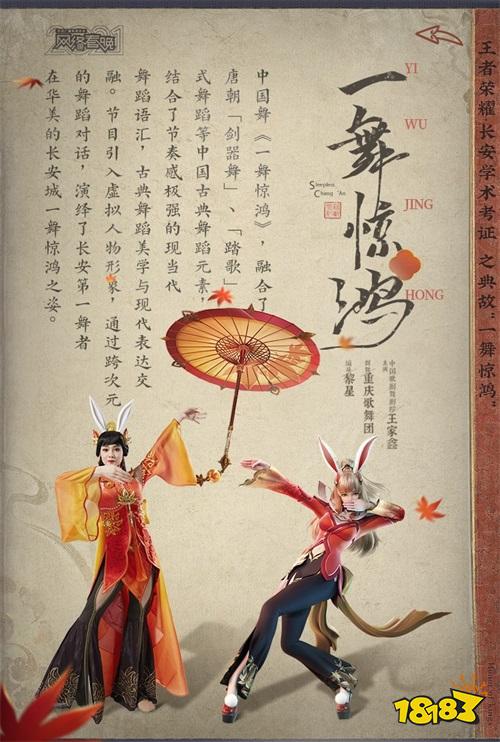 王者荣耀·长安学术考证 之典故：一舞惊鸿：
一舞惊鸿
YI
WU
JING
HONG
Sleepless
Chang 'An
中国歌剧舞剧院
主演
王家鑫
重庆歌舞团
编导
黎星
中国舞《一舞惊鸿》，融合了
唐朝「剑器舞」、「踏歌」
式舞蹈等中国古典舞蹈元素，
结合了节奏感极强的现当代
舞蹈语汇，古典舞蹈美学与现代表达交
融。节目引入虚拟人物形象，通过跨次元
的舞蹈对话，演绎了长安第一舞者
在华美的长安城一舞惊鸿之姿。
2021
网络春晚
18183